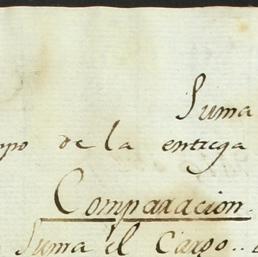 Suma
po de la entrega
Comparacion.
Suma el Cargo..